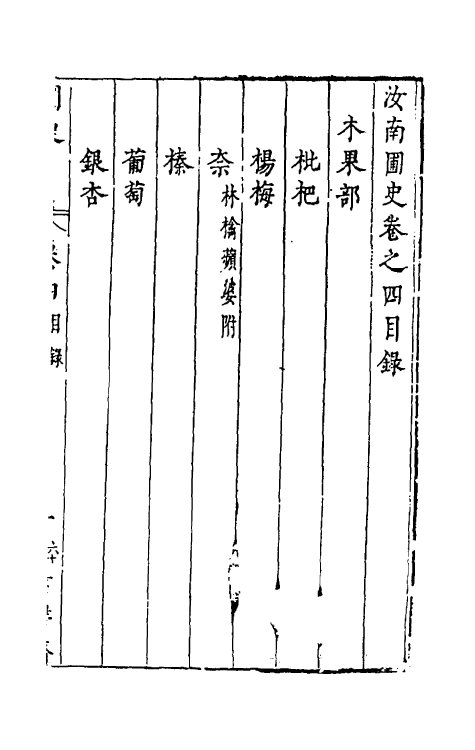 汝南圃史卷之四目錄
木果部
枇杷
楊梅
柰林檎蘋婆附
榛
葡萄
銀杏
卷四目錄